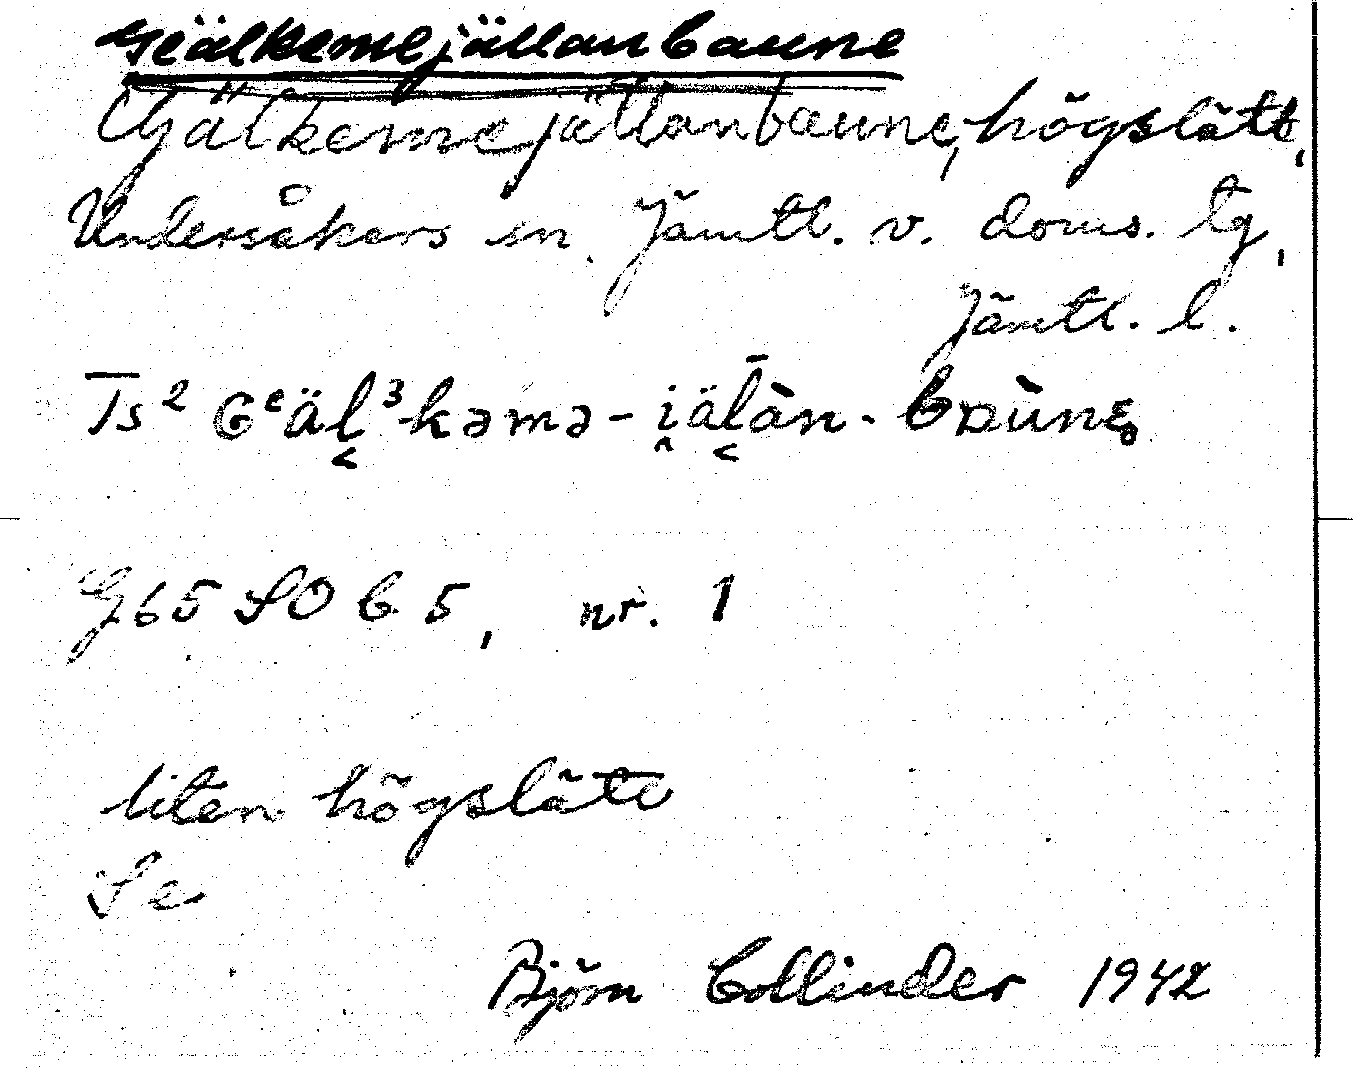 Gïälkemejällanbaune
Gjälkemejällanbaune, högslätt,
Undersåkers sn, Jämtl. v. doms. tg,
Jämtl. l.
Ts² Gᵉäl̬³kəmə-i̯äl̬̄àn-bɒùnɛ
G65 SO b 5, nr. 1
liten högslätt
Se
Björn Collinder 1942